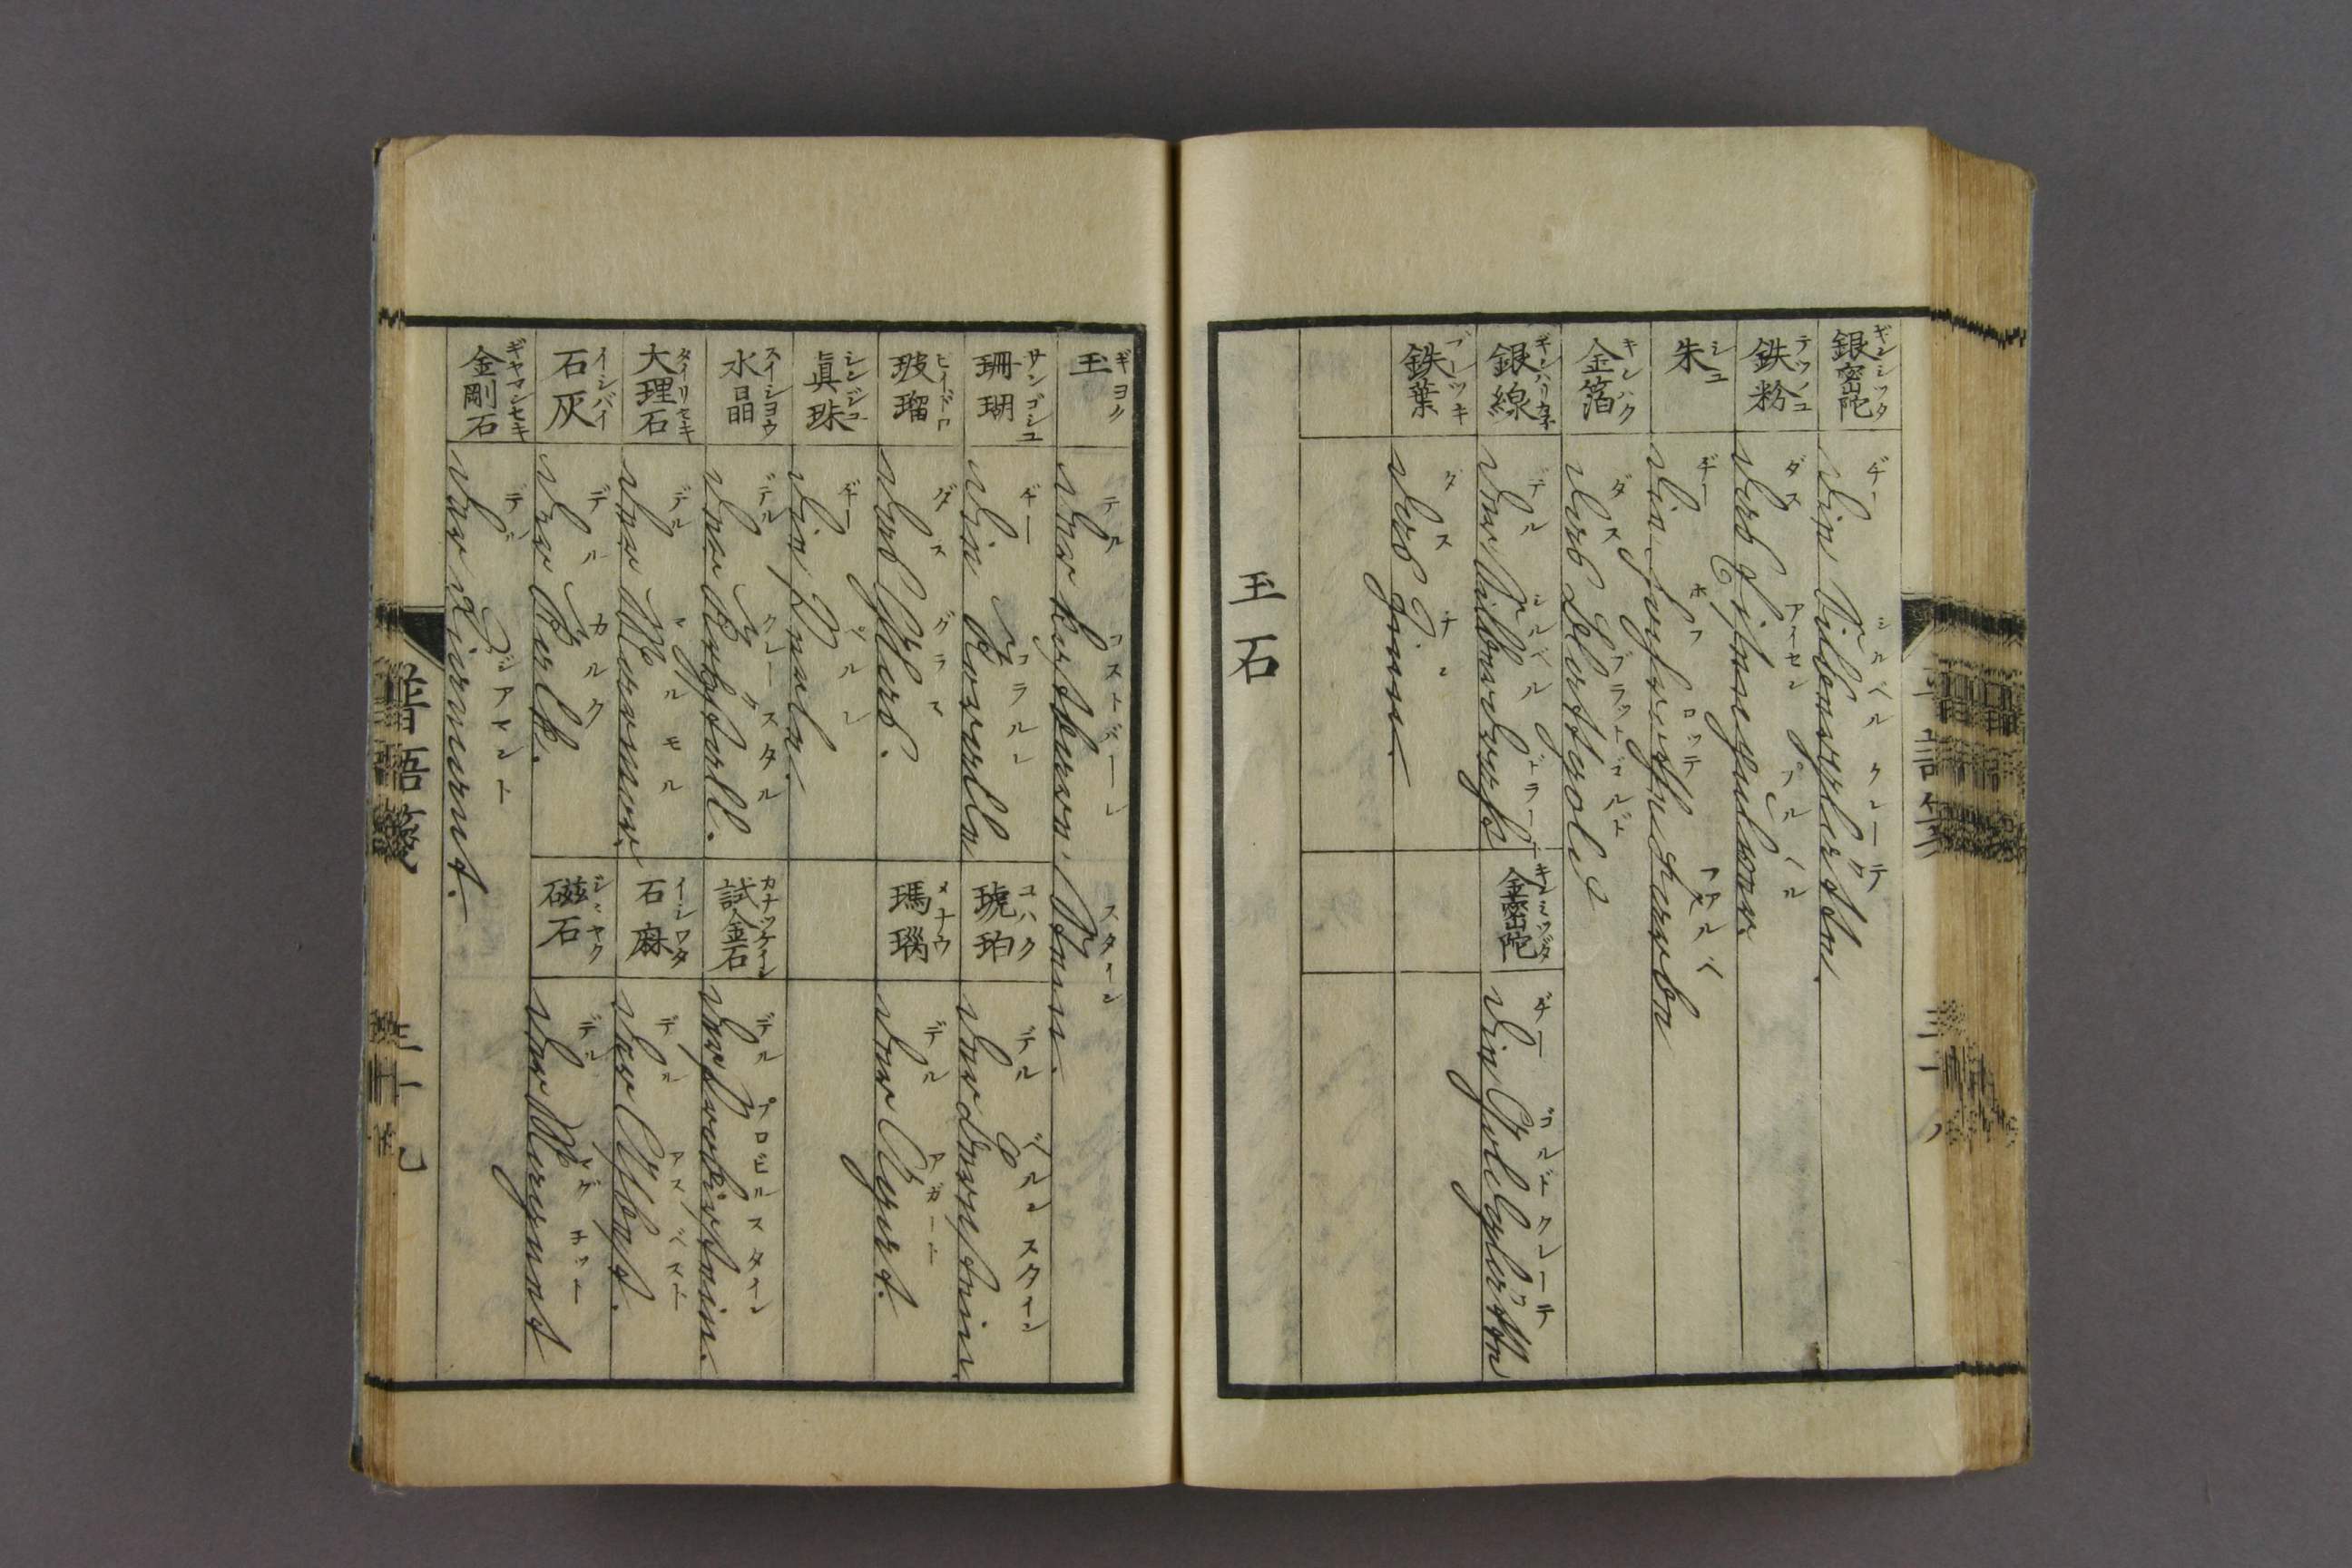 銀密陀 ギンミツダ
ヂー シルベル グレーテ
die Silberglätte.
鉄粉 テツノコ
ダス アイゼン プルヘル
das Eisenpulver.
朱 シユ
ヂー ホフ ロッテ フアルベ
die hochrothe Farbe
金箔 キンハク
ダス ブラットゴルド
das Blattgold
銀線 ギンハリカネ
デル シルベル ドラート
der Silberdraht
金密陀 キンミツダ
ヂー ゴルド グレーテ
die Goldglätte
鉄葉 ブリツキ
ダス チン
das Zinn.
玉石
玉 ギヨク
デル コストバーレ スタイン
der kostbare Stein.
珊瑚 サンゴシユ
ヂー コラルレ
die Koralle
琥珀 コハク
デル ベルンスタイン
der Bernstein.
玻瑠 ヒイドロ
ダス グラス
das Glas.
瑪瑙 メナウ
デル アガート
der Agat.
真珠 シンジユ
ヂー ペルレ
die Perle.
水晶 スイシヨウ
デル クリースタル
der Krystall.
試金石 カナツケイシ
デル プロビルスタイン
der Probirstein.
大理石 タイリセキ
デル マルモル
der Marmor.
石麻 イシワタ
デル アスベスト
der Asbest.
石灰 イシバイ
デル カルク
der Kalk.
磁石 ジシヤク
デル マグネット
der Magnet
金剛石 ギヤマンセキ
デル ヂアマント
der Diamant.
普語箋 三十九